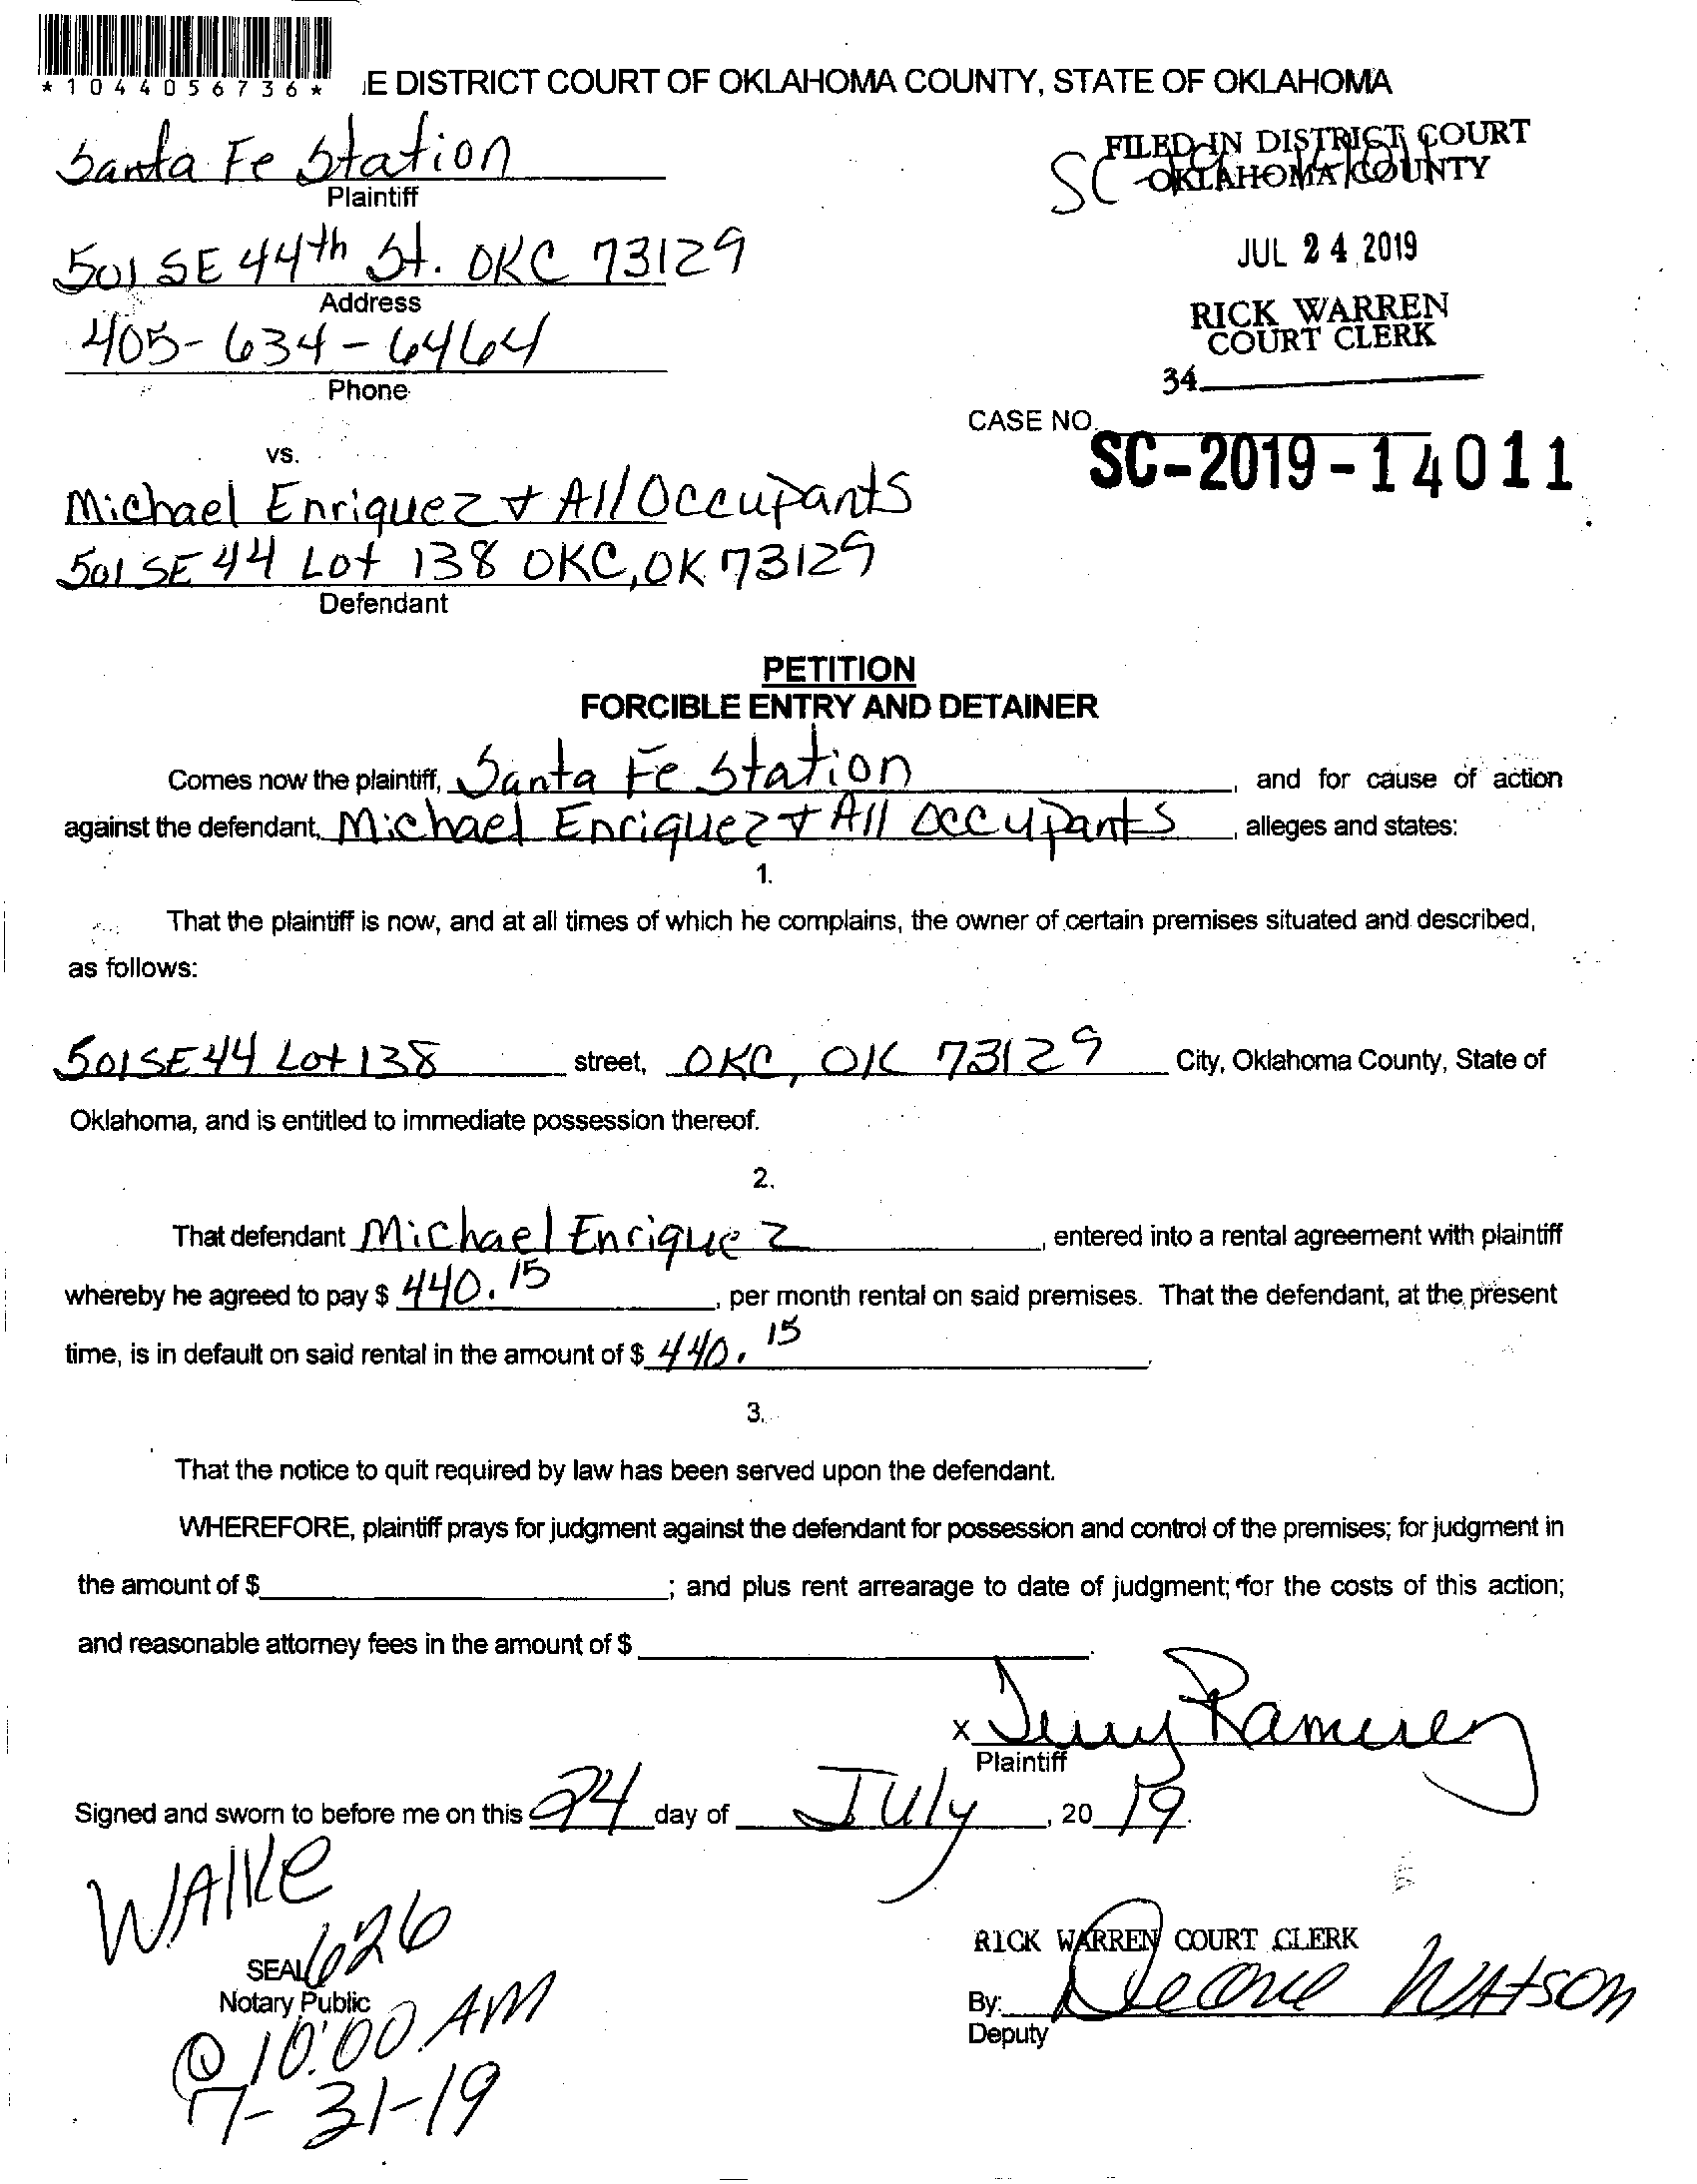 *1044056736*
E DISTRICT COURT OF OKLAHOMA COUNTY, STATE OF OKLAHOMA
Santa Fe Station
Plaintiff
501 SE 44th St. OKC 73129
Address
405-634-6464
Phone
FILED IN DISTRICT COURT
OKLAHOMA COUNTY
SC-19-14011
JUL 24 2019
RICK WARREN
COURT CLERK
34
CASE NO.
SC-2019-14011
vs.
Michael Enriquez + All Occupants
501 SE 44 Lot 138 OKC, OK 73129
Defendant
PETITION
FORCIBLE ENTRY AND DETAINER
Comes now the plaintiff, Santa Fe Station, and for cause of action
against the defendant, Michael Enriquez + All Occupants, alleges and states:
1.
That the plaintiff is now, and at all times of which he complains, the owner of certain premises situated and described,
as follows:
501 SE 44 Lot 138 street, OKC, OK 73129 City, Oklahoma County, State of
Oklahoma, and is entitled to immediate possession thereof.
2.
That defendant Michael Enriquez, entered into a rental agreement with plaintiff
whereby he agreed to pay $ 440.15, per month rental on said premises. That the defendant, at the present
time, is in default on said rental in the amount of $ 440.15.
3.
That the notice to quit required by law has been served upon the defendant.
WHEREFORE, plaintiff prays for judgment against the defendant for possession and control of the premises; for judgment in
the amount of $ ; and plus rent arrearage to date of judgment; for the costs of this action;
and reasonable attorney fees in the amount of $ .
x Ramirez
Plaintiff
Signed and sworn to before me on this 24 day of July, 2019.
WAlke
626
SEAL
Notary Public
@ 10:00 AM
7-31-19
RICK WARREN COURT CLERK
By: Watson
Deputy